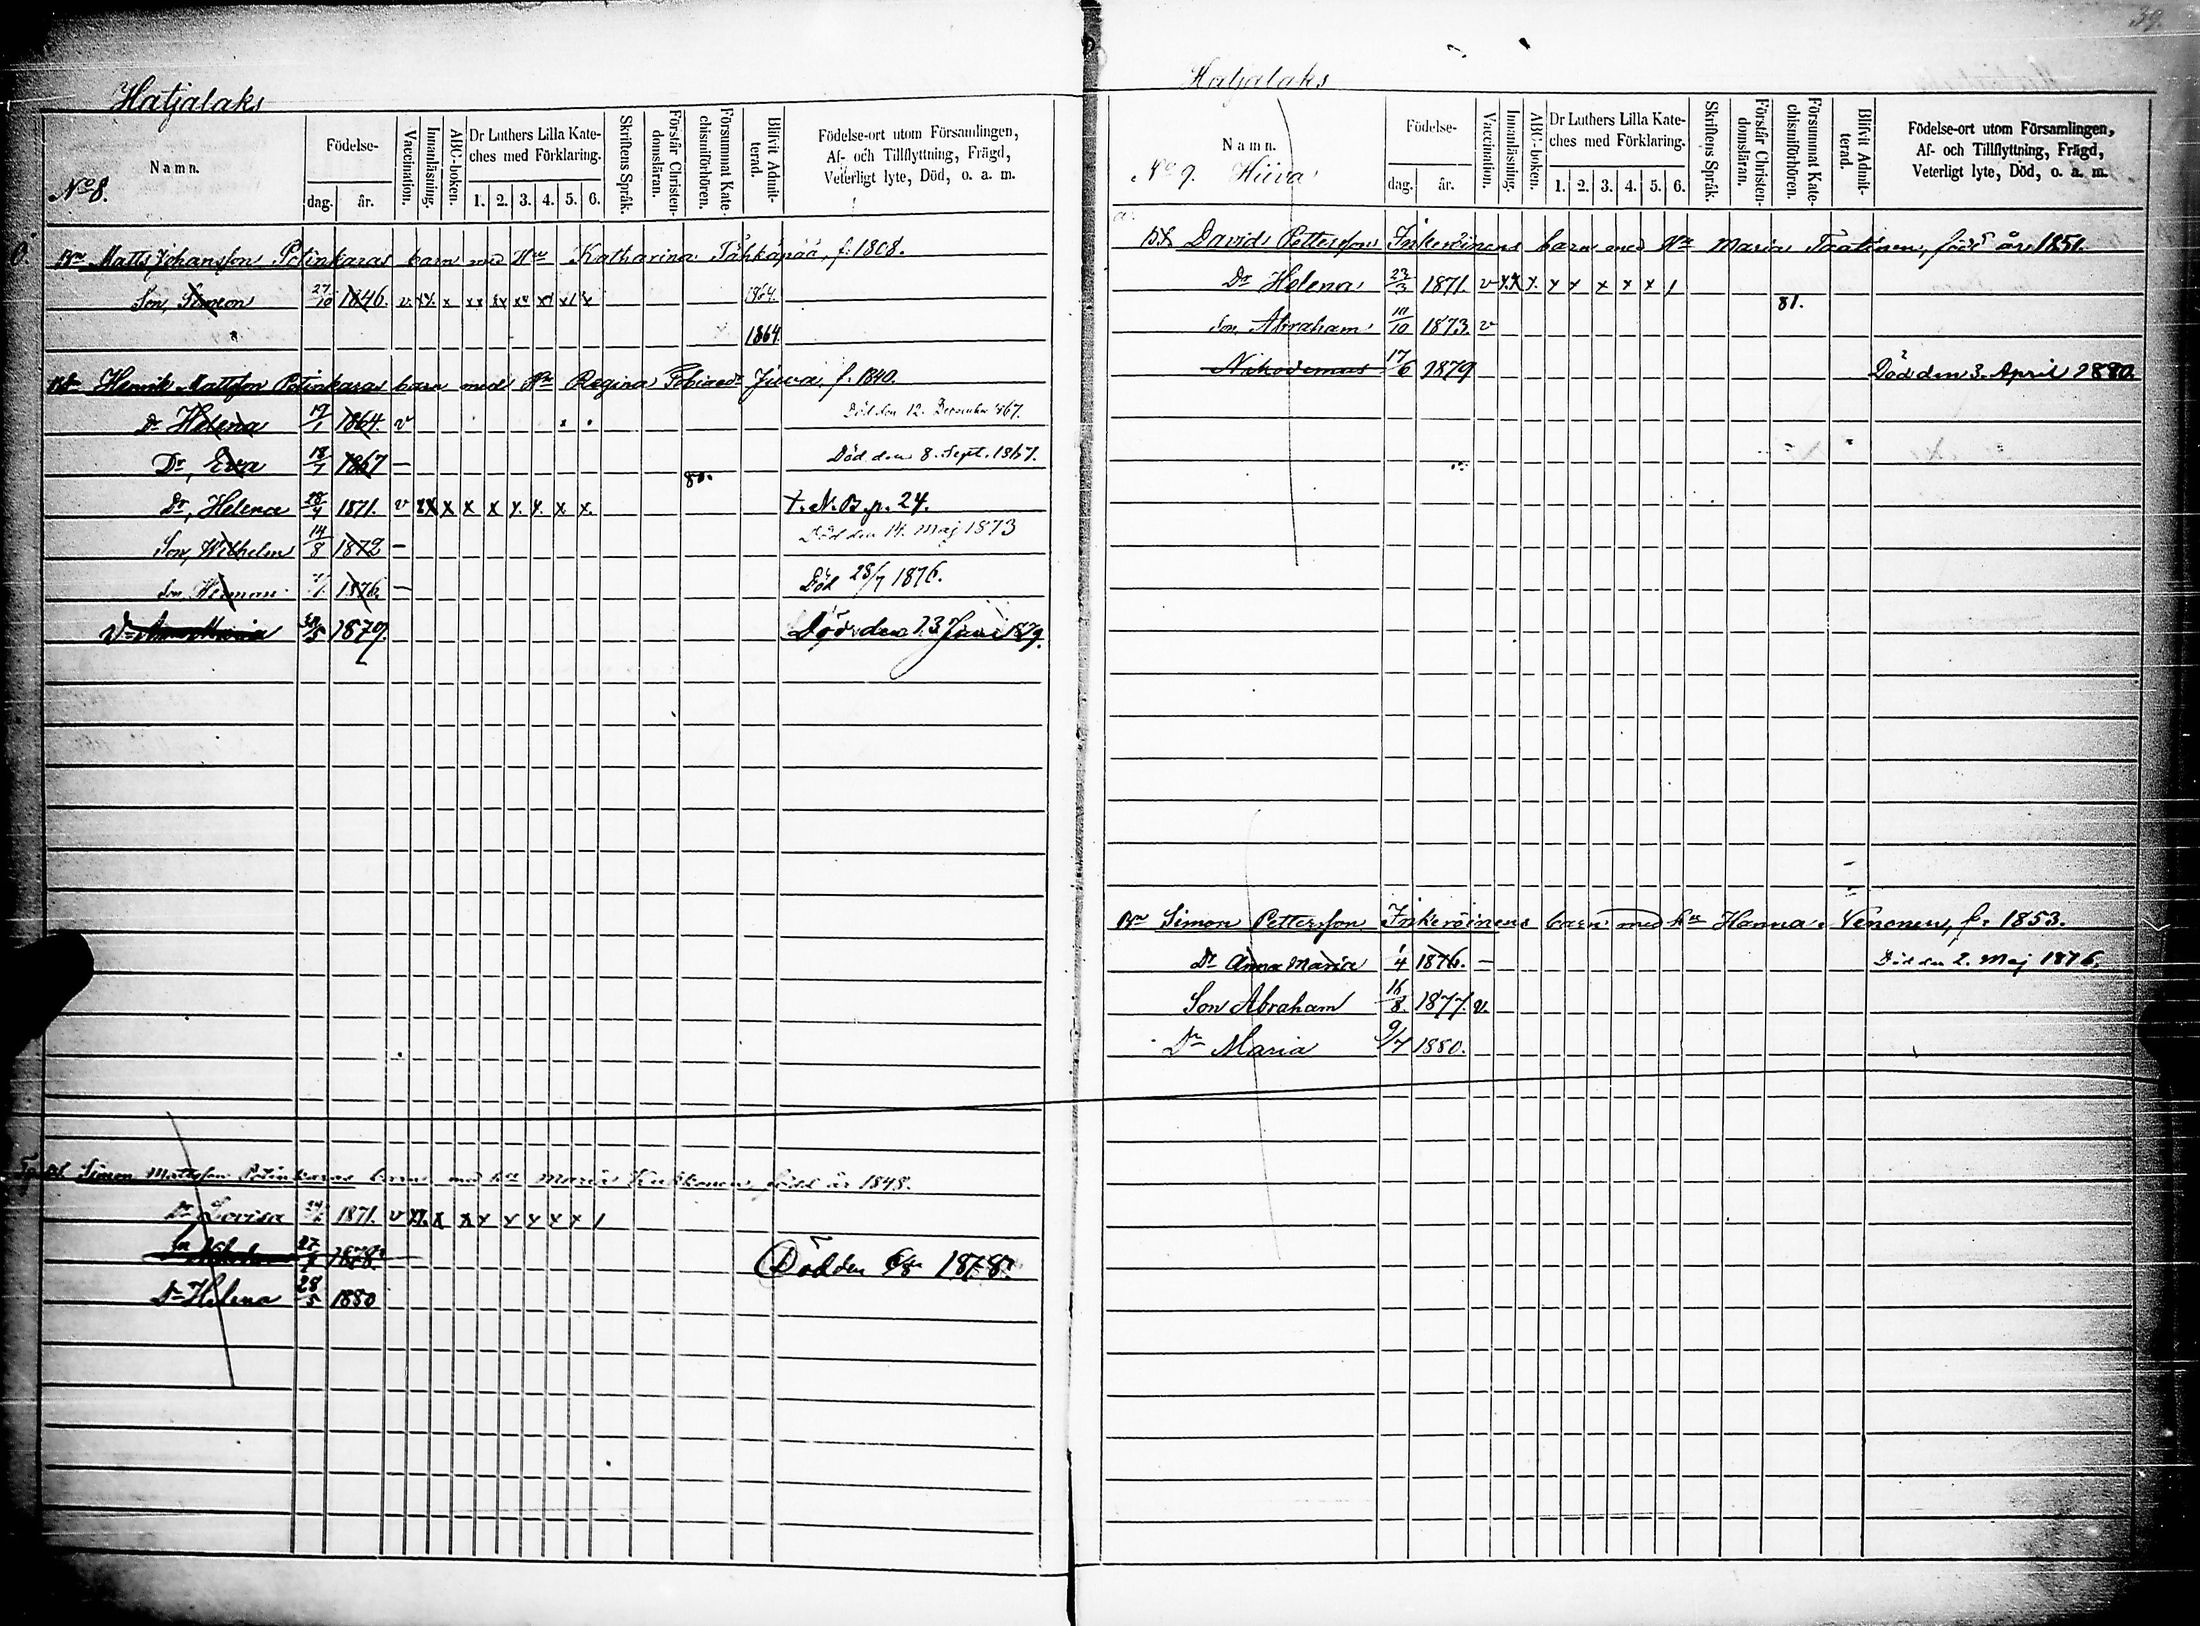 39.
Hatjalaks
Namn.
Födelse-
dag.
år.
Vaccination.
Innanläsning.
ABC-boken.
Dr Luthers Lilla Kate-
ches med Förklaring.
1. 2. 3. 4. 5. 6.
Skriftens Språk.
Förstår Christen-
domsläran.
Försummat Kate-
chismiförhören.
Blifvit Admit-
terad.
Födelse-ort utom Församlingen,
Af- och Tillflyttning, Frägd,
Veterligt lyte, Död, o. a. m.
No 8.
Bn Matts Johansson Potinkaras barn med Hu Katharina Tähkäpää, f. 1808.
Son, Simeon 27/10 1846. v xx x xx xx xx xx x x 1864.
1864.
Henrik Mattsson Potinkaras barn med Hu Regina Tobiaedr Juva, f. 1840.
Dr Helena 19/1 1864. v Död den 12. December 1867.
Dr, Eva 18/7 1867 — Död den 8. Sept. 1867.
80.
Dr, Helena 28/4 1871. v xx x x x x. x. x x. t. N. B. p. 24.
Son, Wilhelm 14/8 1872 — Död den 14. Maj 1873
Son Herman 1876 — Död 28/7 1876.
Anna Maria 30/5 1879. Död den 13 Juni 1879.
Simon Mattsson Potinkaras barn med hu Maria Kukkonen, född år 1848.
Dr Lovisa 1871. v xx. x x x x x x x 1
Sn 27 1878. Död den 6/8 1878.
Dr Helena 28/5 1880
Hatjalaks
Namn.
Födelse-
dag.
år.
Vaccination.
Innanläsning.
ABC-boken.
Dr Luthers Lilla Kate-
ches med Förklaring.
1. 2. 3. 4. 5. 6.
Skriftens Språk.
Förstår Christen-
domsläran.
Försummat Kate-
chismiförhören.
Blifvit Admit-
terad.
Födelse-ort utom Församlingen,
Af- och Tillflyttning, Frägd,
Veterligt lyte, Död, o. a. m.
No 9. Hiiva
a.
David Pettersson Inkeröinens barn med Hu Maria Taatinen, född år 1851.
Dr Helena 23/3 1871. v xx x. x x x x x 1
81.
Son, Abraham 10/10 1873. v
Nikodemus 17/6 1879 Död den 3. April 1880.
Bn Simon Pettersson Inkeröinens barn med hu Hanna Venonen, f. 1853.
Dr Anna Maria 1/4 1876. — Död den 2. Maj 1876.
Son Abraham 16/8. 1877. v.
Dr Maria 9/7 1880.